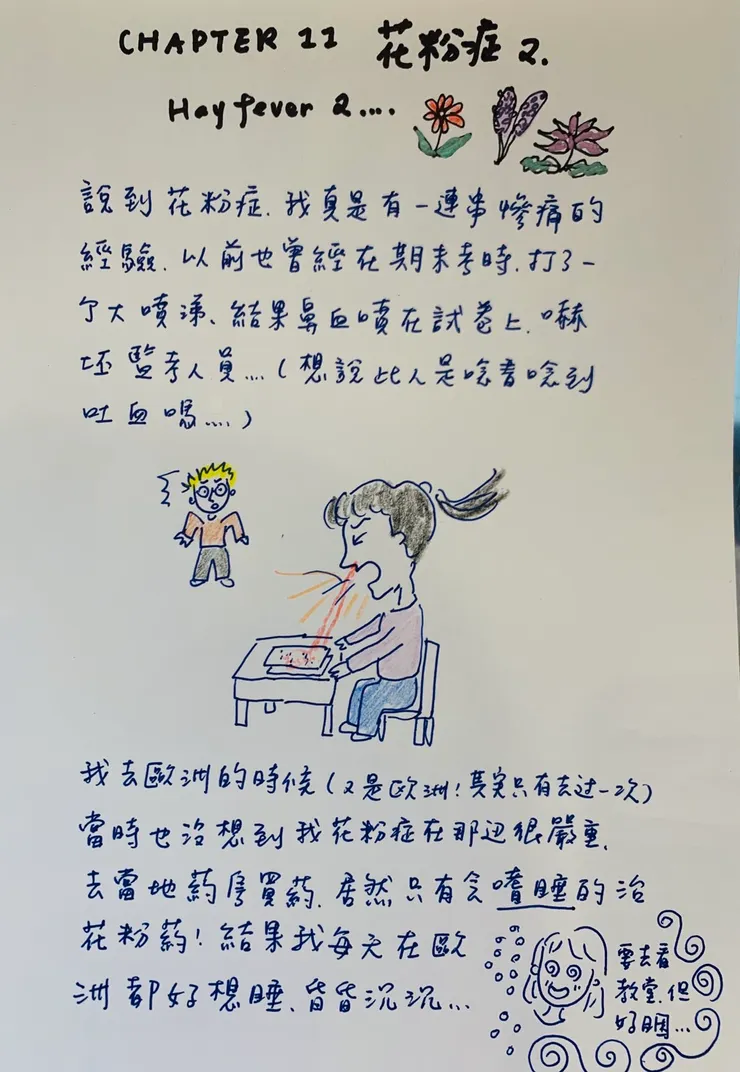 CHAPTER 11 花粉症 2.
Hayfever 2....
說到花粉症.我真是有一連串慘痛的
經驗.以前也曾經在期末考時.打了一
个大噴涕、結果鼻血噴在試卷上.嚇
坯監考人員....(想說此人是唸書唸到
吐血嗎....)
我去歐洲的時候(又是欧洲!其实只有去过一次)
當時也沒想到我花粉症在那边很嚴重.
去當地葯房買葯.居然只有会嗜睡的治
花粉葯!結果我每天在歐
洲都好想睡、昏昏沉沉...
要去看
教堂.但
好睏...